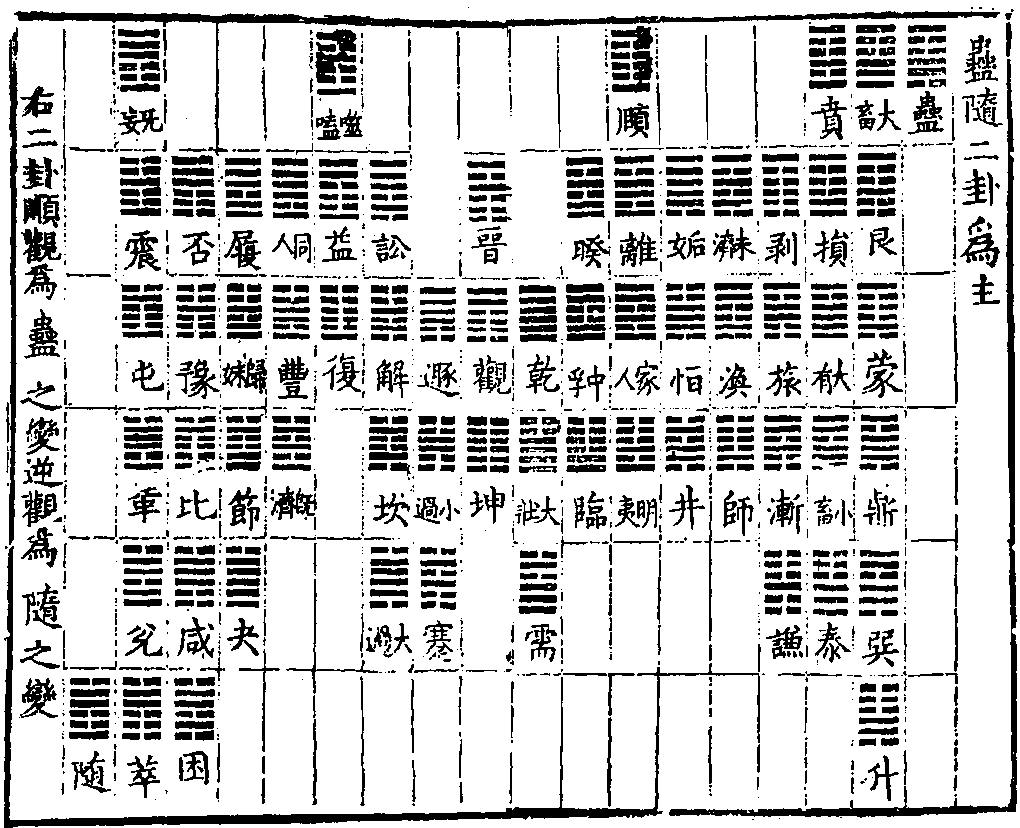 蠱隨二卦爲主
蠱
大畜 艮 蒙 鼎 巽 升
賁 損 大有 小畜 泰
剥 旅 漸 謙
未濟 渙 師
姤 恒 井
頤 離 家人 明夷
睽 中孚 臨
乾 大壯 需
晉 觀 坤
遯 小過 蹇
訟 解 坎 大過
噬嗑 益 復
同人 豐 既濟
履 歸妹 節 夬
否 豫 比 咸 困
无妄 震 屯 革 兌 萃
隨
右二卦順觀爲蠱之變逆觀爲隨之變